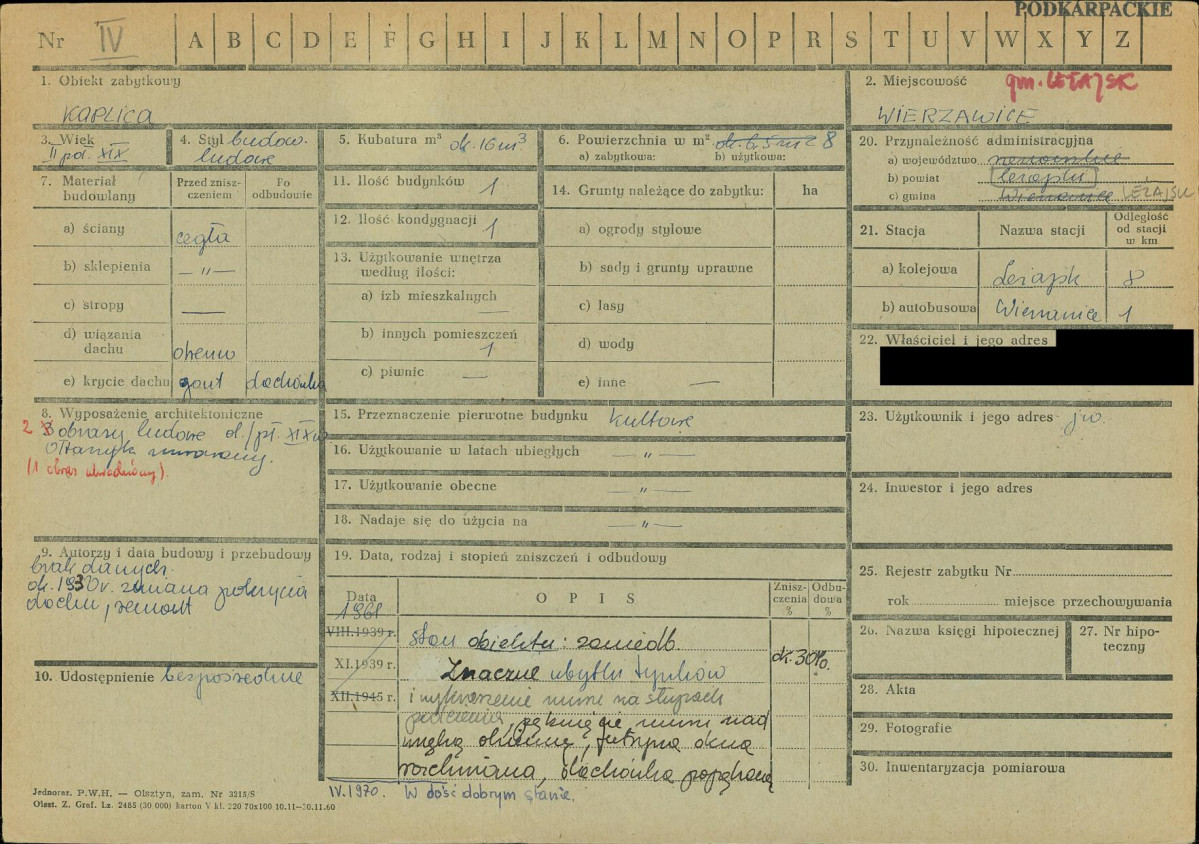 PODKARPACKIE
Nr IV A B C D E F G H I J K L M N O P R S T U V W X Y Z
1. Obiekt zabytkowy
KAPLICA
2. Miejscowość gm. LEŻAJSK
WIERZAWICE
3. Wiek
II poł. XIX
4. Styl budow.
ludowe
5. Kubatura m³ ok. 16 m³
6. Powierzchnia w m² 8
a) zabytkowa: b) użytkowa:
7. Materiał budowlany
Przed zniszczeniem
Po odbudowie
a) ściany cegła
b) sklepienia — „ —
c) stropy —
d) wiązania dachu drewno
e) krycie dachu gont dachówka
8. Wyposażenie architektoniczne
2 obrazy ludowe
Ołtarzyk murowany.
(1 obraz
9. Autorzy i data budowy i przebudowy
brak danych.
ok. 1930 r. zmiana pokrycia
dachu, remont
10. Udostępnienie bezpośrednie
11. Ilość budynków 1
12. Ilość kondygnacji 1
13. Użytkowanie wnętrza
według ilości:
a) izb mieszkalnych —
b) innych pomieszczeń 1
c) piwnic —
14. Grunty należące do zabytku: ha
a) ogrody stylowe
b) sady i grunty uprawne
c) lasy
d) wody
e) inne —
15. Przeznaczenie pierwotne budynku kultowe
16. Użytkowanie w latach ubiegłych — „ —
17. Użytkowanie obecne — „ —
18. Nadaje się do użycia na — „ —
19. Data, rodzaj i stopień zniszczeń i odbudowy
Data
OPIS
Zniszczenia %
Odbudowa %
1961
VIII.1939 r. stan obiektu: zaniedb. ok. 30%.
XI.1939 r. Znaczne ubytki tynków
XII.1945 r. i wykruszenie muru na słupach
pęknięcie muru nad
wnęką okienną, futryna okna
dachówka popękana
IV.1970. W dość dobrym stanie.
20. Przynależność administracyjna
a) województwo rzeszowskie
b) powiat leżajski
c) gmina Wierzawice LEŻAJSK
21. Stacja
Nazwa stacji
Odległość od stacji w km
a) kolejowa Leżajsk 8
b) autobusowa Wierzawice 1
22. Właściciel i jego adres
23. Użytkownik i jego adres jw.
24. Inwestor i jego adres
25. Rejestr zabytku Nr
rok miejsce przechowywania
26. Nazwa księgi hipotecznej
27. Nr hipoteczny
28. Akta
29. Fotografie
30. Inwentaryzacja pomiarowa
Jednoraz. P.W.H. — Olsztyn, zam. Nr 3215/S
Olszt. Z. Graf. Lz. 2485 (30 000) karton V kl. 220 70x100 10.11—30.11.60